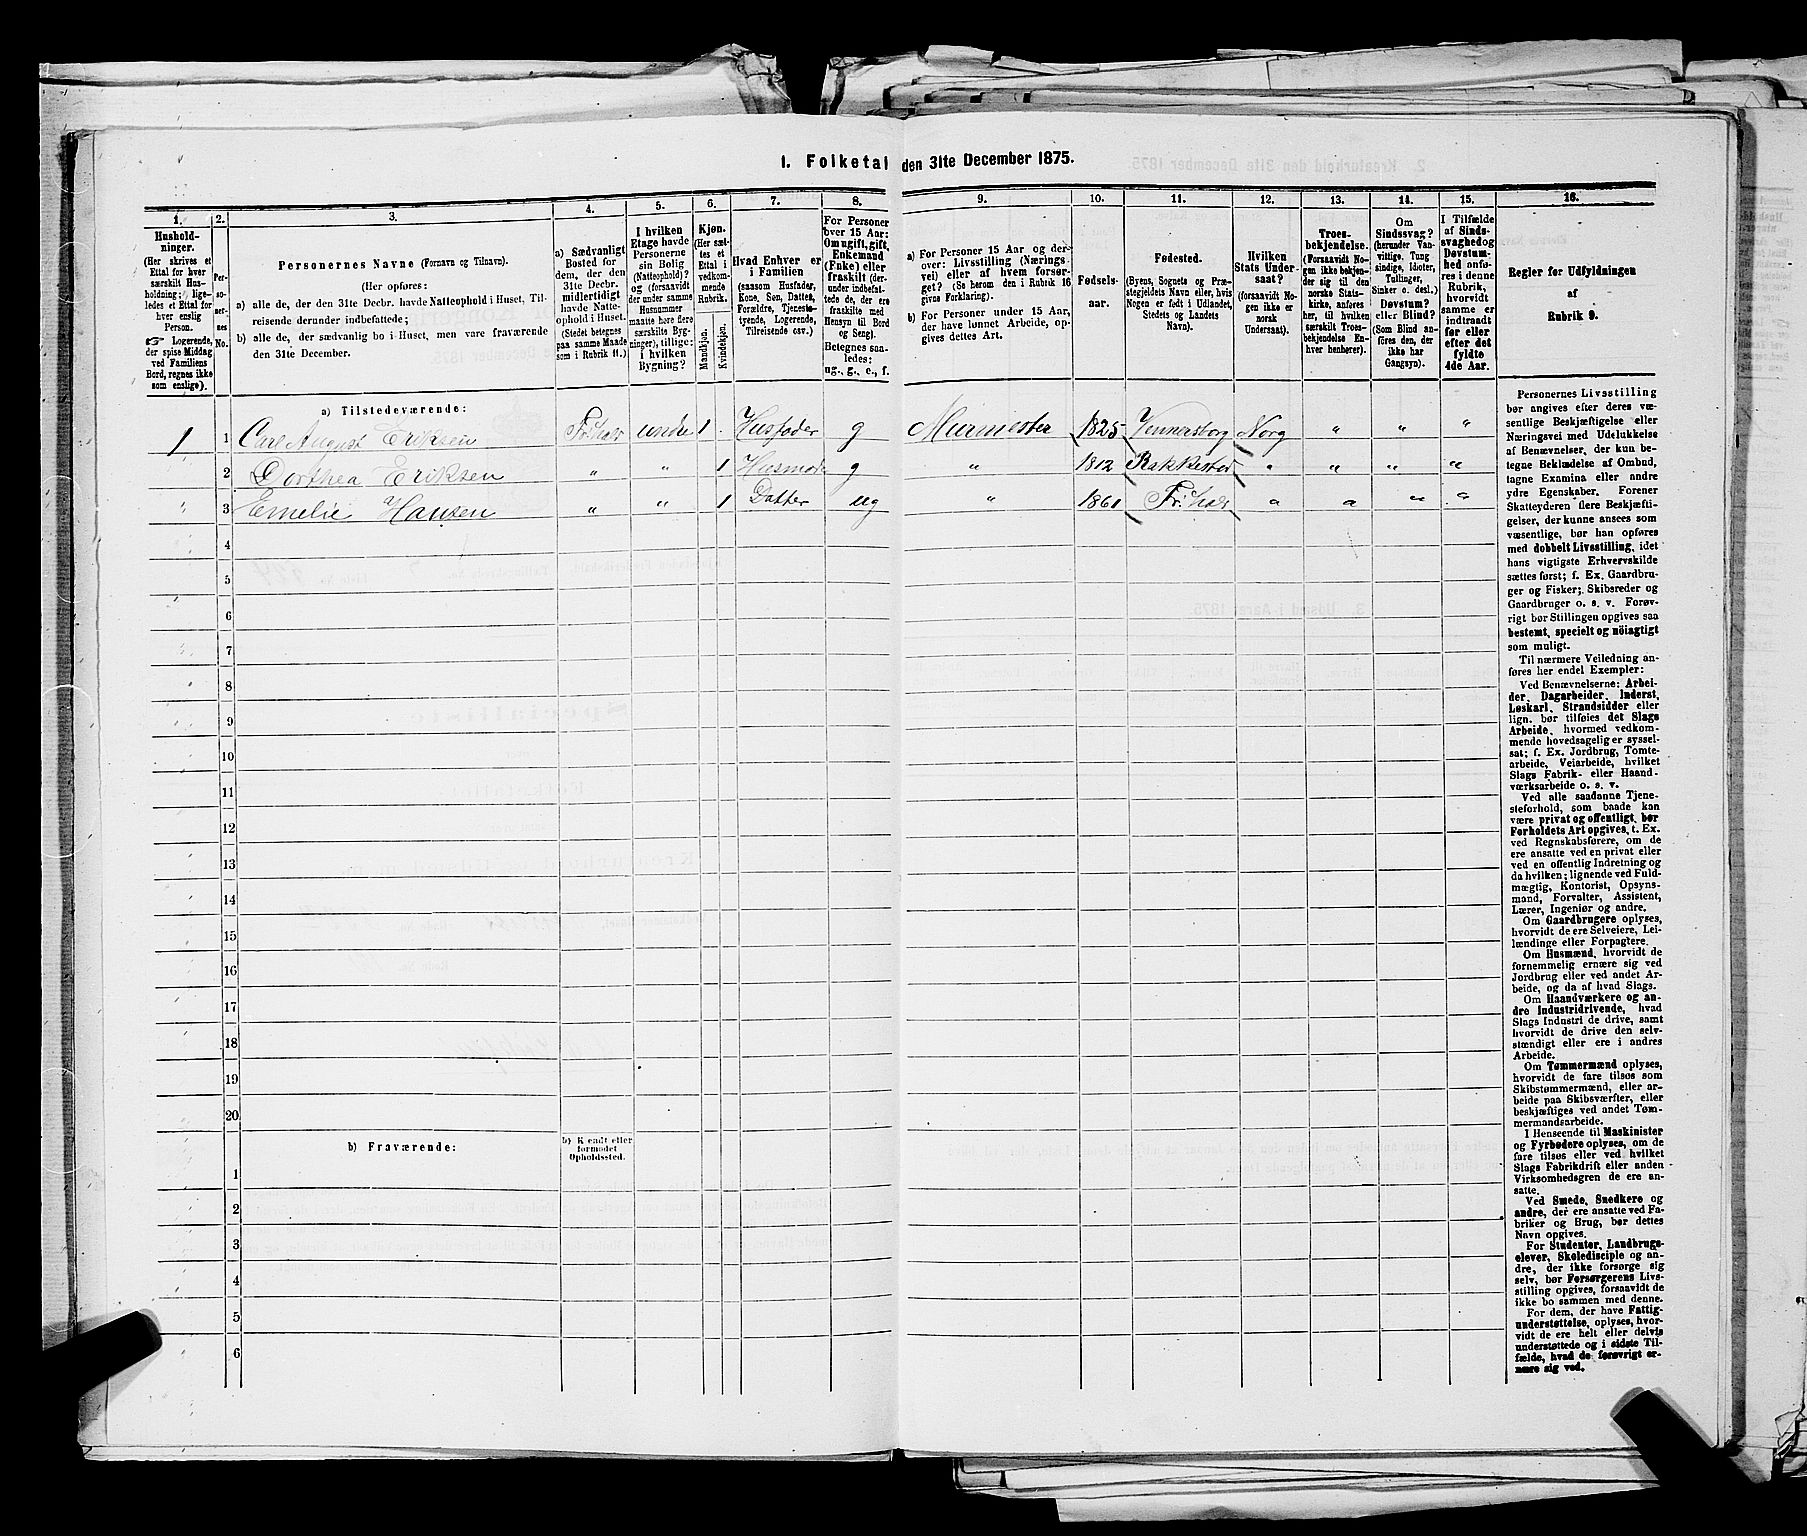 1. Folketal den 31te December 1875.
1. 2. 3. 4. 5. 6. 7. 8. 9. 10. 11. 12. 13. 14. 15. 16.
Hushold-
ninger.
(Her skrives et
Ettal for hver
særskilt Hus-
holdning; lige-
ledes et Ettal for
hver enslig
Person.
☞ Logerende,
der spise Middag
ved Familiens
Bord, regnes ikke
som enslige).
Per-
so-
ner-
nes
No.
Personernes Navne (Fornavn og Tilnavn).
(Her opføres:
a) alle de, der den 31te Decbr. havde Natteophold i Huset, Til-
reisende derunder indbefattede;
b) alle de, der sædvanlig bo i Huset, men vare fraværende
den 31te December.
a) Sædvanligt
Bosted for
dem, der den
31te Decbr.
midlertidigt
havde Natte-
ophold i Huset.
(Stedet betegnes
paa samme Maade
som i Rubrik 11.)
I hvilken
Etage havde
Personerne
sin Bolig
(Natteophold)?
og
(forsaavidt
der under samme
Husnummer
maatte høre flere
særskilte Byg-
ninger), tillige:
i hvilken
Bygning?
Kjøn.
(Her sæt-
tes et
Ettal i
vedkom-
mende
Rubrik.
Mandkjøn.
Kvindekjøn.
Hvad Enhver er
i Familien
(saasom Husfader,
Kone, Søn, Datter,
Forældre, Tjeneste-
tyende, Logerende,
Tilreisende osv.)
For Personer
over 15 Aar:
Om ugift, gift,
Enkemand
(Enke) eller
fraskilt (der-
under indbefat-
tede de, der ere
fraskilte med
Hensyn til Bord
og Seng).
Betegnes saa-
ledes:
ug., g., e., f.
a) For Personer 15 Aar og der-
over: Livsstilling (Nærings-
vei) eller af hvem forsør-
get? (Se herom den i Rubrik 16
givne Forklaring).
b) For Personer under 15 Aar,
der have lønnet Arbeide, op-
gives dettes Art.
Fødsels-
aar.
Fødested.
(Byens, Sognets og Præ-
stegjeldets Navn eller, hvis
Nogen er født i Udlandet,
Stedets og Landets
Navn).
Hvilken
Stats Under-
saat?
(forsaavidt No-
gen ikke er
norsk
Undersaat).
Troes-
bekjendelse.
(Forsaavidt No-
gen ikke bekjen-
der sig til den
norske Stats-
kirke, anføres
her, til hvilken
særskilt Troes-
bekjendelse En-
hver henhører).
Om
Sindssvag?
(herunder Van-
vittige, Tung
sindige, Idioter,
Tullinger,
Sinker o. desl.)
Døvstum?
eller Blind?
(Som Blind an-
føres den, der
ikke har
Gangsyn).
I Tilfælde
af Sinds-
svaghed og
Døvstum-
hed anfø-
res i denne
Rubrik,
hvorvidt
samme er
indtraadt
før eller
efter det
fyldte
4de Aar.
Regler for Udfyldningen
af
Rubrik 9.
a) Tilstedeværende:
1 1 Carl August Eriksen Fr:hald under 1 . Husfader g Murmester 1825 Vennersborg Norg " " "
2 Dorthea Eriksen " " 1 Husmod g " 1812 Rakkestad " " " "
" 3 Emelie Hansen " " 1 Datter ug " 1861 Fr:hald " " " "
4
5
6
7
8
9
10
11
12
13
14
15
16
17
18
19
20
b) Fraværende:
b) Kendt eller
formodet
Opholdssted.
1
2
3
4
5
6
Personernes Livsstilling
bør angives efter deres væ-
sentlige Beskjæftigelse eller
Næringsvei med Udelukkelse
af Benævnelser, der kun be-
tegne Beklædelse af Ombud,
tagne Examina eller andre
ydre Egenskaber. Forener
Skatteyderen flere Beskjæfti-
gelser, der kunne ansees som
væsentlige, bør han opføres
med dobbelt Livsstilling, idet
hans vigtigste Erhvervskilde
sættes først; f. Ex. Gaardbru-
ger og Fisker; Skibsreder og
Gaardbruger o. s. v. Forøv-
rigt bør Stillingen opgives saa
bestemt, specielt og nöiagtigt
som muligt.
Til nærmere Veiledning an-
føres her endel Exempler:
Ved Benævnelserne: Arbei-
der, Dagarbeider, Inderst,
Løskarl, Strandsidder eller
lign. bør tilføies det Slags
Arbeide, hvormed vedkom-
mende hovedsagelig er syssel-
sat; f. Ex. Jordbrug, Tomte-
arbeide, Veiarbeide, hvilket
Slags Fabrik- eller Haand-
værksarbeide o. s. v.
Ved alle saadanne Tjene-
steforhold, som baade kan
være privat og offentligt, bør
Forholdets Art opgives, t. Ex.
ved Regnskabsførere, om de
ere ansatte ved en privat eller
ved en offentlig Indretning og
da hvilken; lignende ved Fuld-
mægtig, Kontorist, Opsyns-
mand, Forvalter, Assistent,
Lærer, Ingeniør og andre.
Om Gaardbrugere oplyses,
hvorvidt de ere Selveiere, Lei-
lændinge eller Forpagtere.
Om Husmænd, hvorvidt de
fornemmelig ernære sig ved
Jordbrug eller ved andet Ar-
beide, og da af hvad Slags.
Om Haandværkere og an-
dre Industridrivende, hvad
Slags Industri de drive, samt
hvorvidt de drive den selv-
stændigt eller ere i andres
Arbeide.
Om Tømmermænd oplyses,
hvorvidt de fare tilsøs som
Skibstømmermænd, eller ar-
beide paa Skibsværfter, eller
beskjæftiges ved andet Tøm-
mermandsarbeide.
I Henseende til Maskinister
og Fyrbødere oplyses, om de
fare tilsøs eller ved hvilket
Slags Fabrikdrift eller anden
Virksomhedsgren de ere an-
satte.
Ved Smede, Snedkere og
andre, der ere ansatte ved Fa-
briker og Brug, bør dettes
Navn opgives.
For Studenter, Landbrugs-
elever, Skoledisciple og an-
dre, der ikke forsørge sig
selv, bør Forsørgerens Livs-
stilling opgives, forsaavidt de
ikke bo sammen med denne.
For dem, der have Fattig-
understøttelse, oplyses, hvor-
vidt de ere helt eller delvis
understøttede og i sidste Til-
fælde, hvad de forøvrigt er-
nære sig ved.